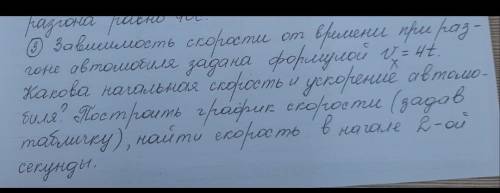 разгона равно 40с.
③ Зависимость скорости от времени при раз-
гоне автомобиля задана формулой Vx = 4t.
Какова начальная скорость и ускорение автомо-
биля? Построить график скорости (задав
табличку), найти скорость в начале 2-ой
секунды.